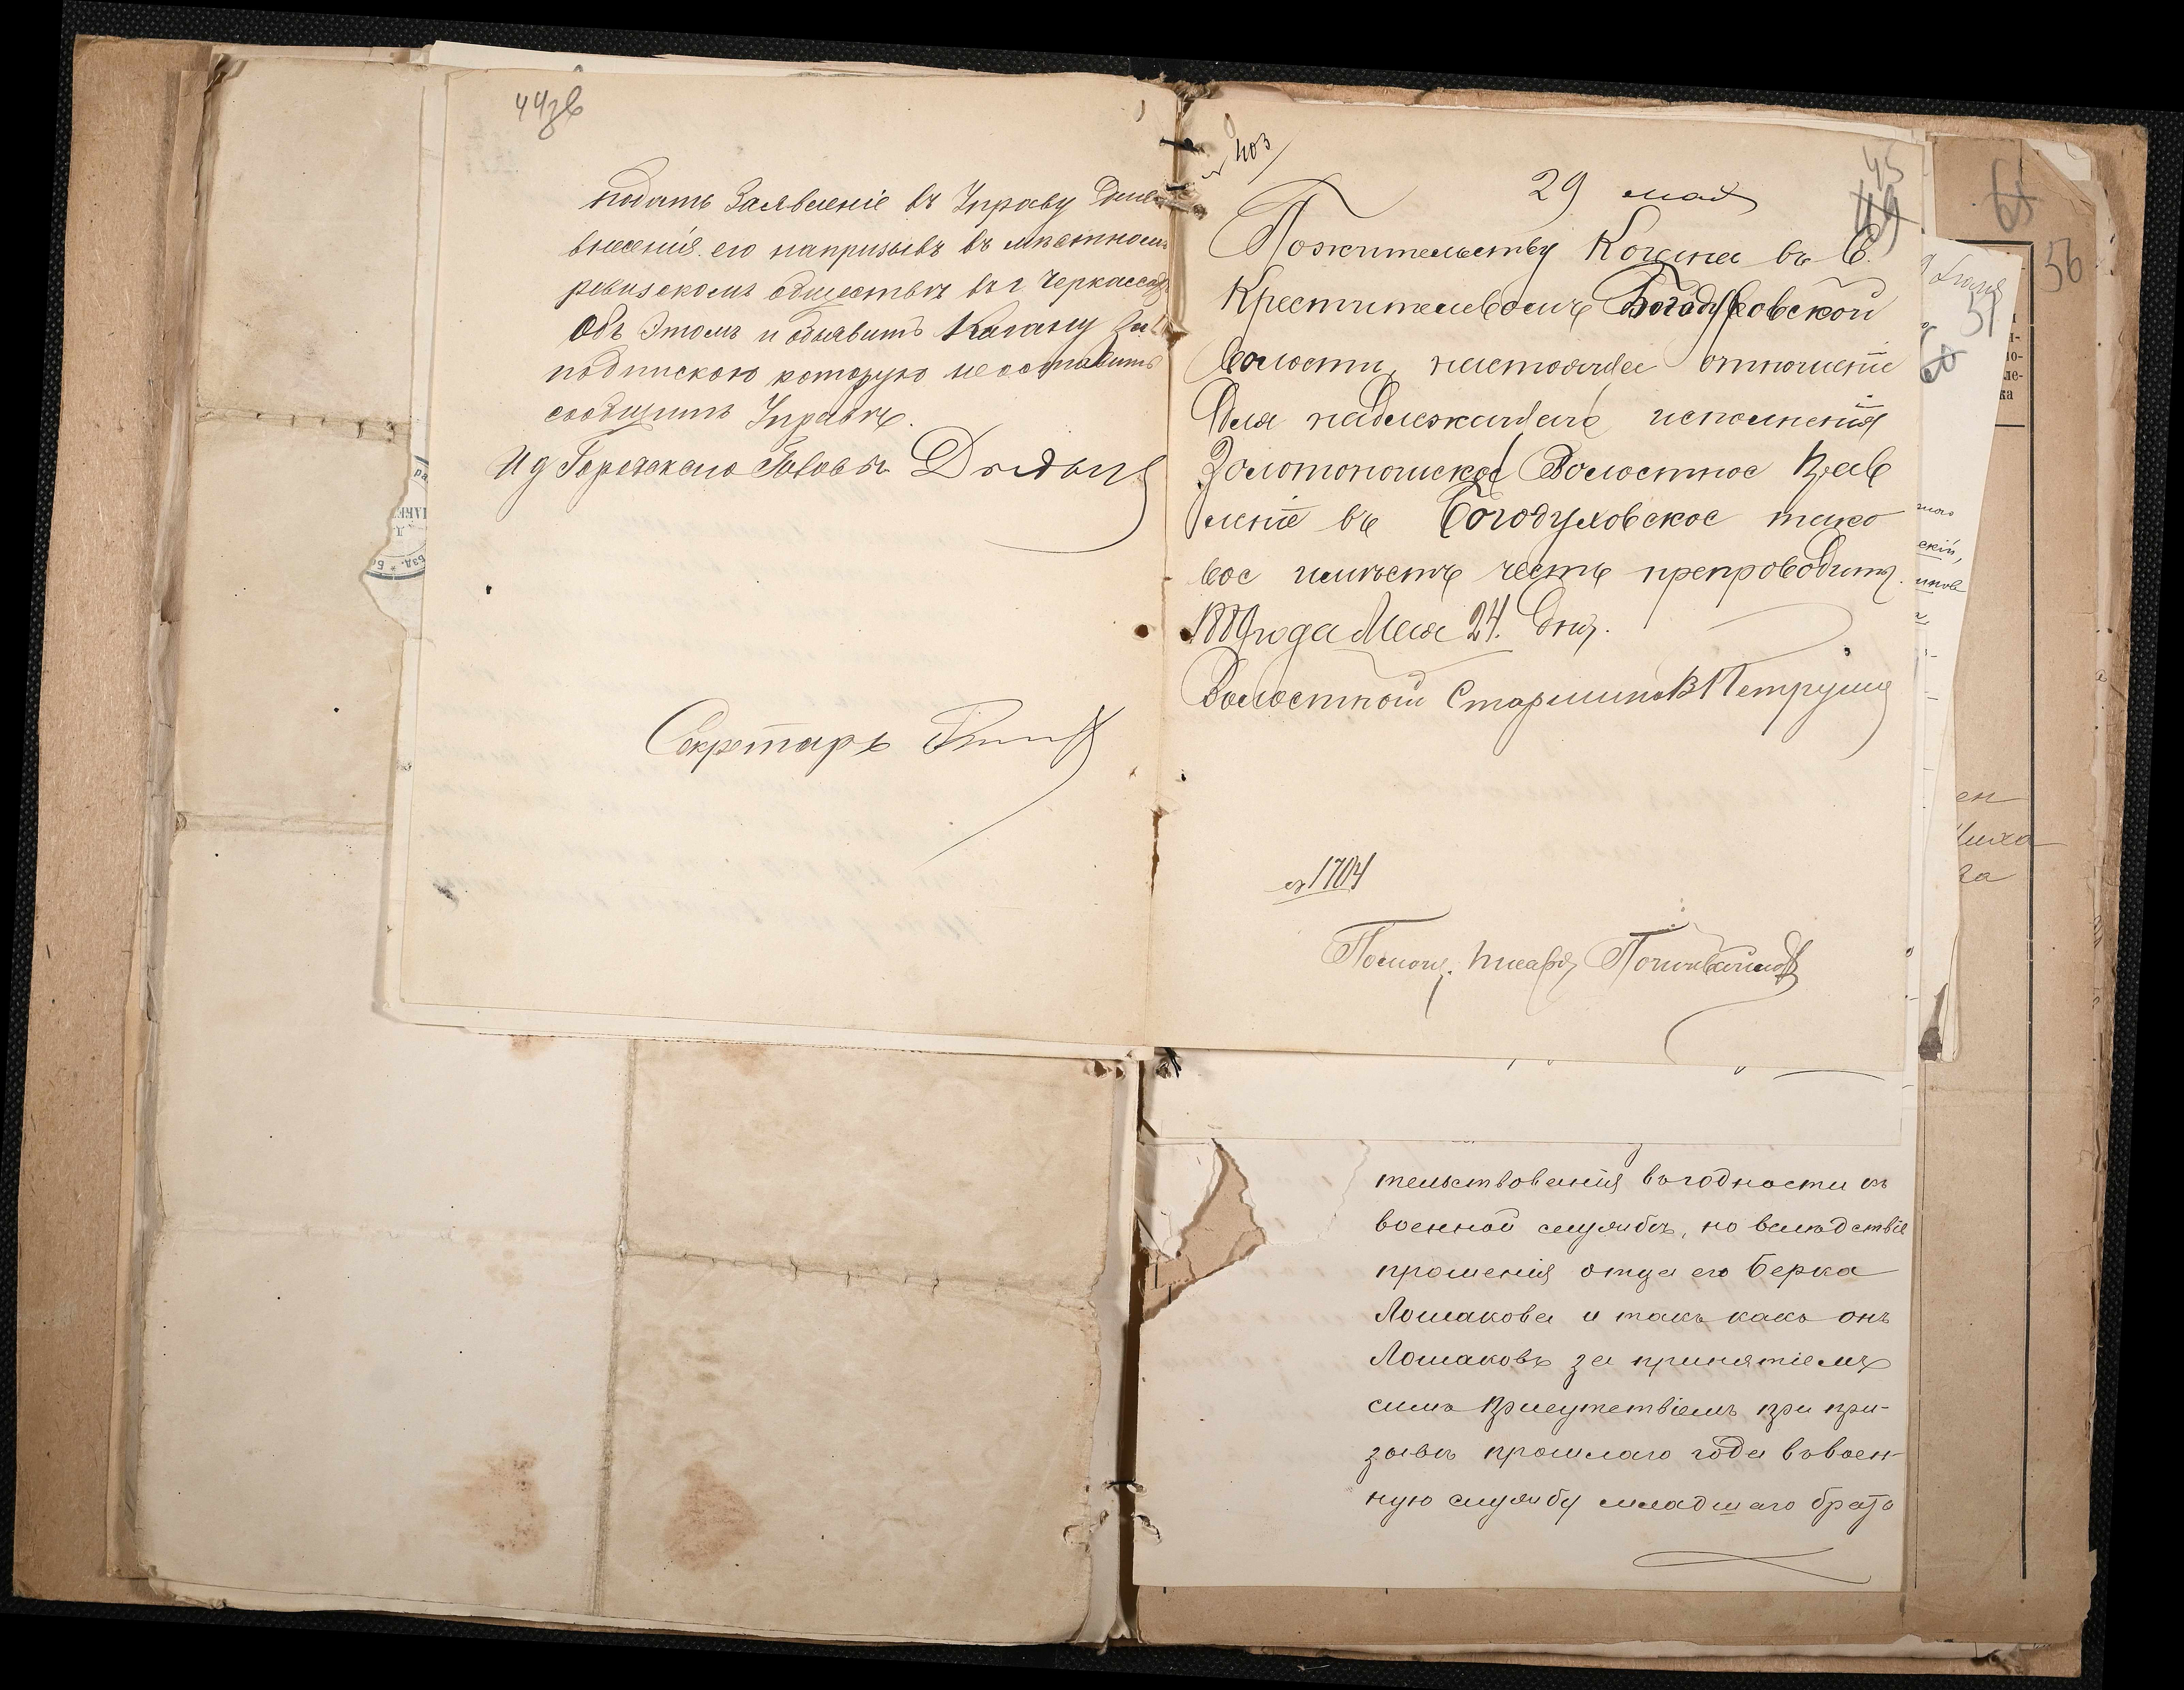 44зв
подать Заявленіе въ Управу Для
внесенія его напризывъ въ мѣстномъ
ревизскомъ обществѣ въ г Черкассахъ
Объ Этомъ и объявить Когану за
подпискою которую неоставить
сообщить Управѣ.
И д Городскаго Головы
Секретарь
№ 403
29 мая
45
49
Пожительству Когана въ С.
Крестителевомъ Богодуховской
волости, настоящее отношеніе
Для надлежащаго исполненія
Золотоношское Волостное Прав
леніе въ Богодуховское тако
вое имѣетъ честь препроводить.
1889 года Мая 24. Дня.
Волостной Старшина В Петруша
№ 1704
Помощ. Писаря
тельствованія въгодности къ
военной службѣ, но вслѣдствіе
прошенія отца его Берка
Лошакова и такъ какъ онъ
Лошаковъ за принятіемъ
симъ Присутствіемъ при при-
зывѣ прошлаго года въвоен-
ную службу младшаго брата
51
56